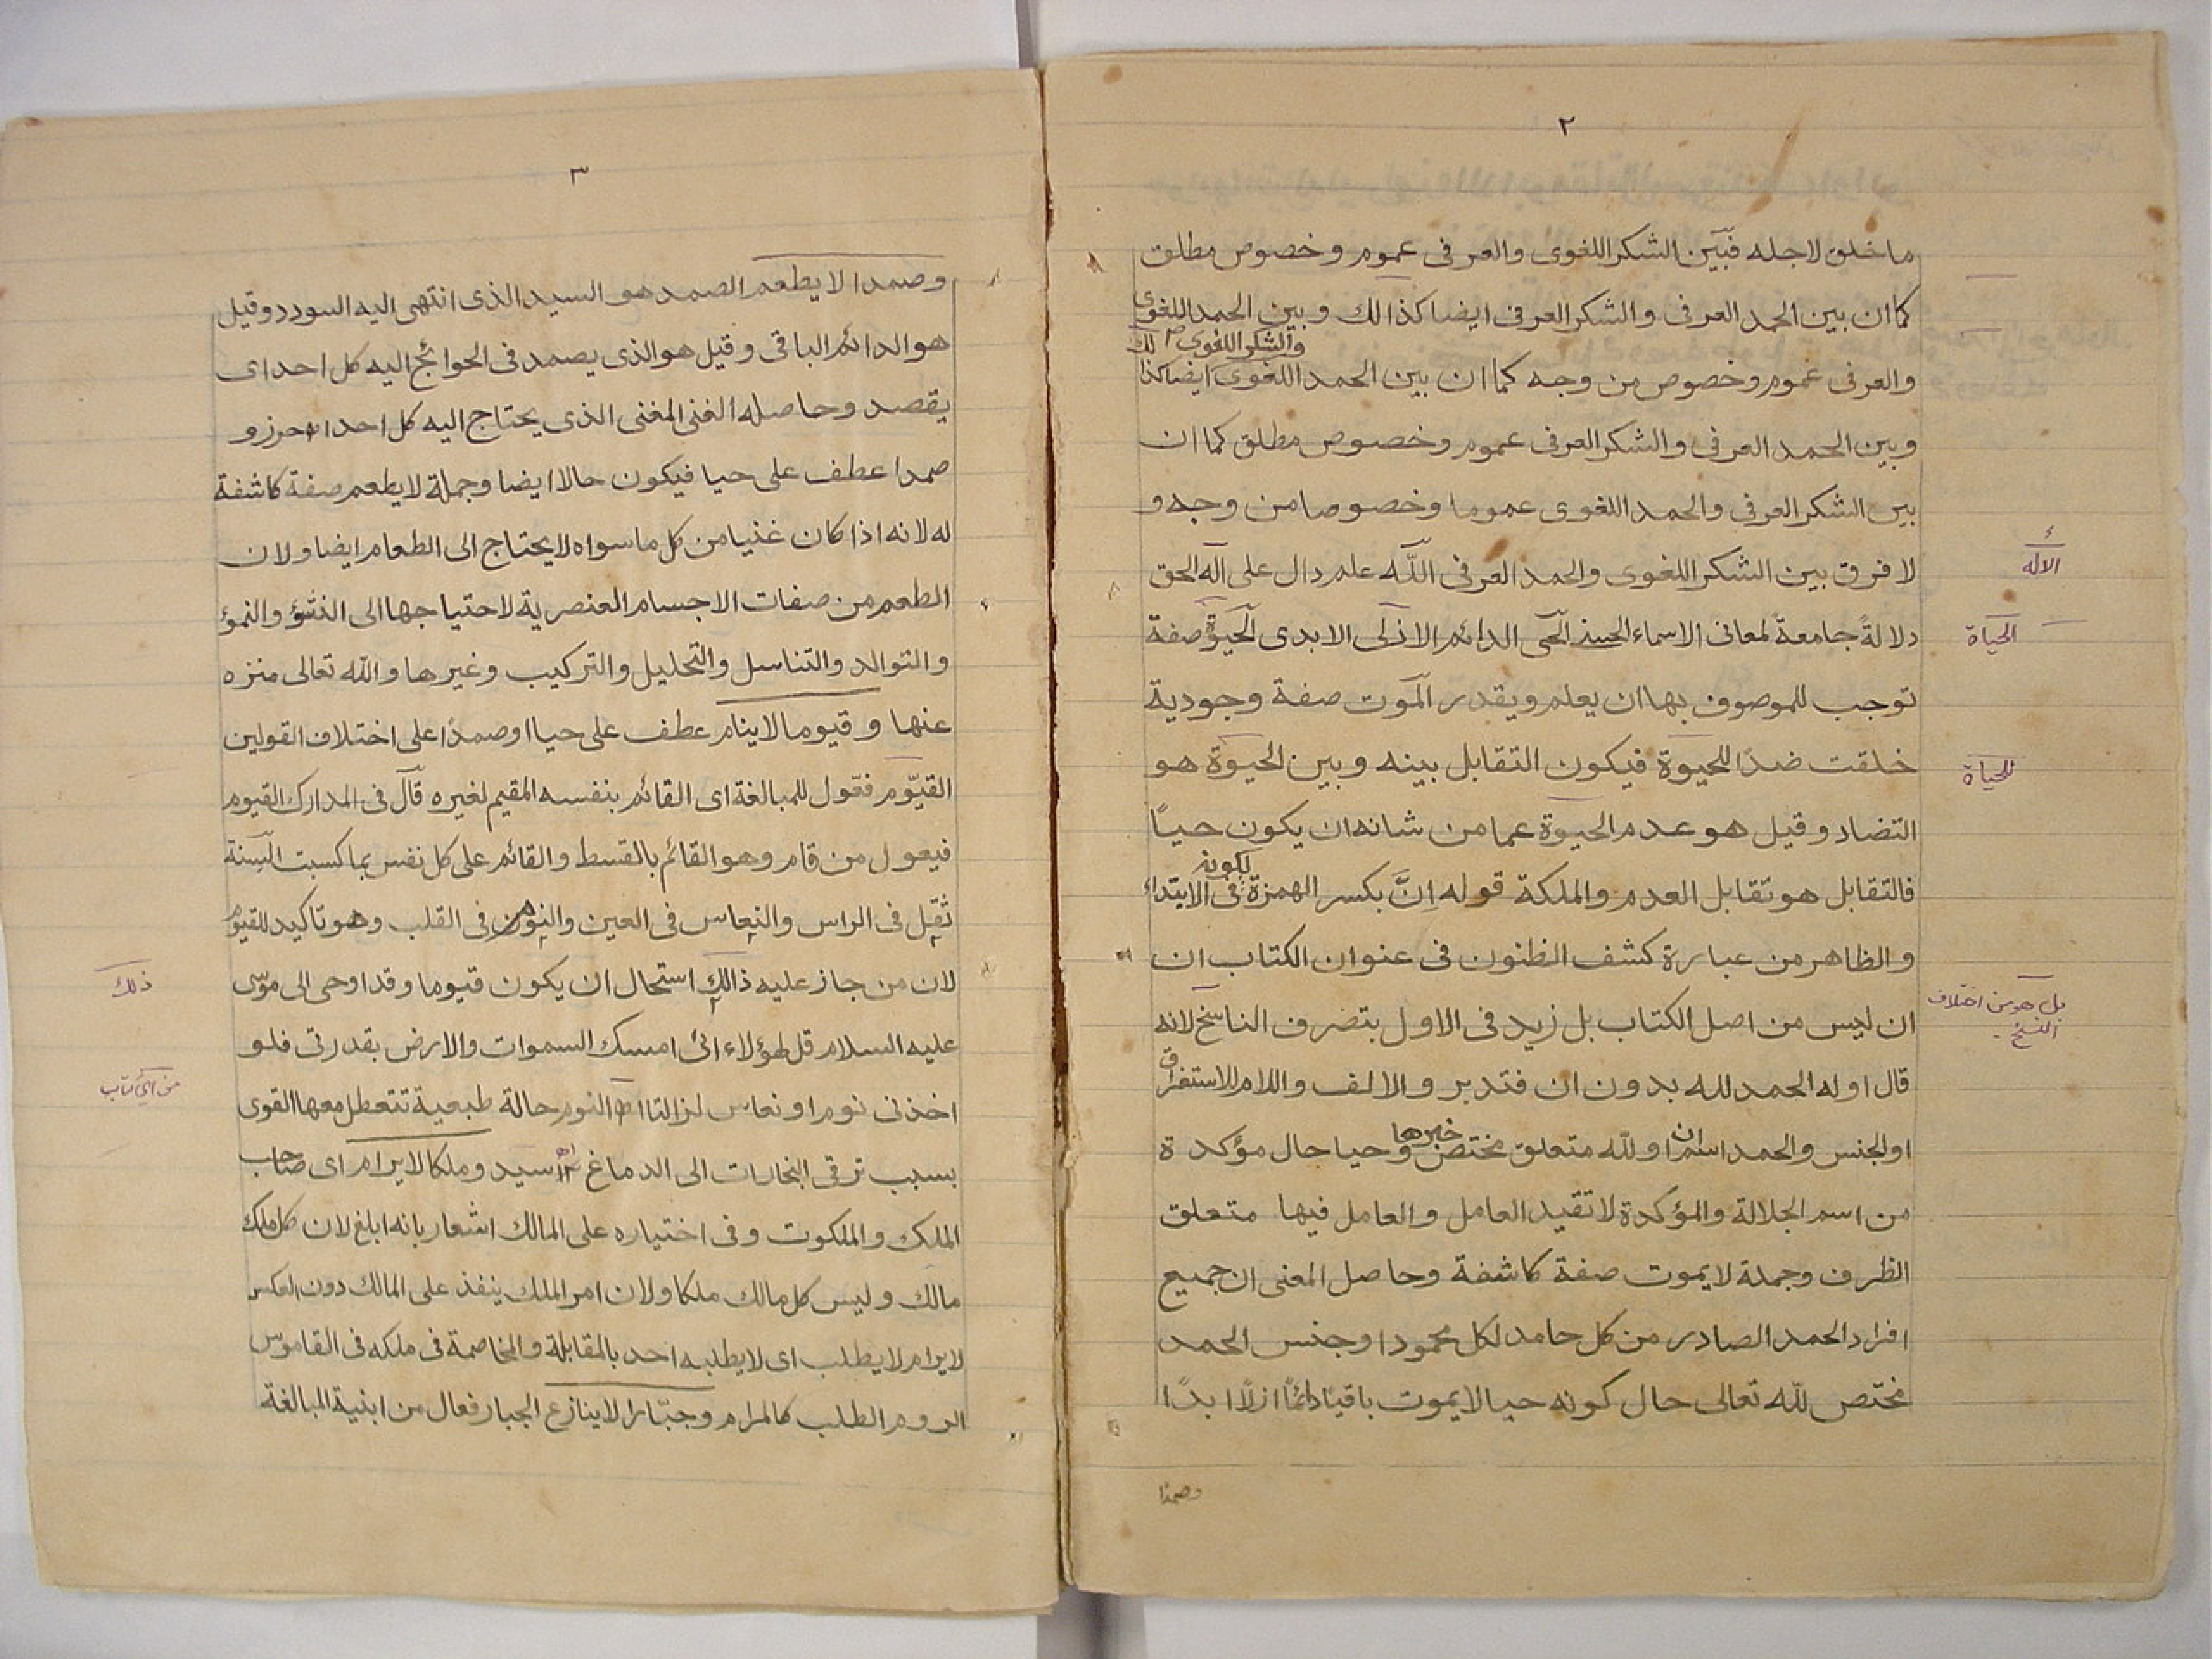 ٢
ما خلق لاجله فبين الشكر اللغوى والعرفى عموم وخصوص مطلق
كما ان بين الحمد العرفى والشكر العرفى ايضا كذالك وبين الحمد اللغوى
والعرفى عموم وخصوص من وجه كما ان بين الحمد اللغوى والشكر اللغوى ايضا كذالك
وبين الحمد العرفى والشكر العرفى عموم وخصوص مطلق كما ان
بين الشكر العرفى والحمد اللغوى عموما وخصوصا من وجه و
لا فرق بين الشكر اللغوى والحمد العرفى اللّه علم دال على اله الحق
الاله
دلالةً جامعة لمعانى الاسماء الحسنى الحى الدائم الازلى الابدى الحيوة صفة
الحياة
توجب للموصوف بها ان يعلم ويقدر الموت صفة وجودية
خلقت ضدًا للحيوة فيكون التقابل بينه وبين الحيوة هو
للحياة
التضاد وقيل هو عدم الحيوة عما من شانه ان يكون حيًا
فالتقابل هو تقابل العدم والملكة قوله اِنَّ بكسر الهمزة لكونه فى الابتداء
والظاهر من عبارة كشف الظنون فى عنوان الكتاب ان
ان ليس من اصل الكتاب بل زيد فى الاول بتصرف الناسخ لانه
بل هو من اختلاف
النسخ
قال اوله الحمد لله بدون ان فتدبر والالف واللام للاستغراق
او للجنس والحمد اسم ان ولله متعلق مختص خبرها وحيا حال مؤكدة
من اسم الجلالة والمؤكدة لا تقيد العامل والعامل فيها متعلق
الظرف وجملة لا يموت صفة كاشفة وحاصل المعنى ان جميع
افراد الحمد الصادر من كل حامد لكل محمود او جنس الحمد
مختص للّه تعالى حال كونه حيا لا يموت باقيًا دائمًا ازلًا ابدًا
وصمدا
٣
وصمدا لا يطعم الصمد هو السيد الذى انتهى اليه السودد وقيل
هو الدائم الباقى وقيل هو الذى يصمد فى الحوائج اليه كل احد اى
يقصد وحاصله الغنى المغنى الذى يحتاج اليه كل احد و
صمدا عطف على حيا فيكون حالا ايضا وجملة لا يطعم صفة كاشفة
له لانه اذا كان غنيا من كل ما سواه لا يحتاج الى الطعام ايضا ولان
الطعم من صفات الاجسام العنصرية لاحتياجها الى النشؤ والنمؤ
والتوالد والتناسل والتحليل والتركيب وغيرها واللّه تعالى منزه
عنها وقيوما لا ينام عطف على حيا او صمدًا على اختلاف القولين
القيّوم فعّول للمبالغة اى القائم بنفسه المقيم لغيره قال فى المدارك القيوم
فيعول من قام وهو القائم بالقسط والقائم على كل نفس بما كسبت السِنة
ثقل فى الراس والنعاس فى العين والنوم فى القلب وهو تاكيد للقيوم
لان من جاز عليه ذالك استحال ان يكون قيوما وقد اوحى الى موسى
ذلك
عليه السلام قل لهؤلاء انى امسك السموات والارض بقدرتى فلو
اخذنى نوم او نعاس لزالتا النوم حالة طبعية تتعطل معها القوى
بسبب ترقى البخارات الى الدماغ سيد وملكا لا يرام اى صاحب
الملك والملكوت وفى اختياره على المالك اشعار بانه ابلغ لان كل ملك
مالك وليس كل مالك ملكا ولان امر الملك ينفذ على المالك دون العكس
لا يرام لا يطلب اى لا يطلبه احد بالمقابلة والمخاصمة فى ملكه فى القاموس
الروم الطلب كالمرام وجبّارا لا ينازع الجبار فعال من ابنية المبالغة